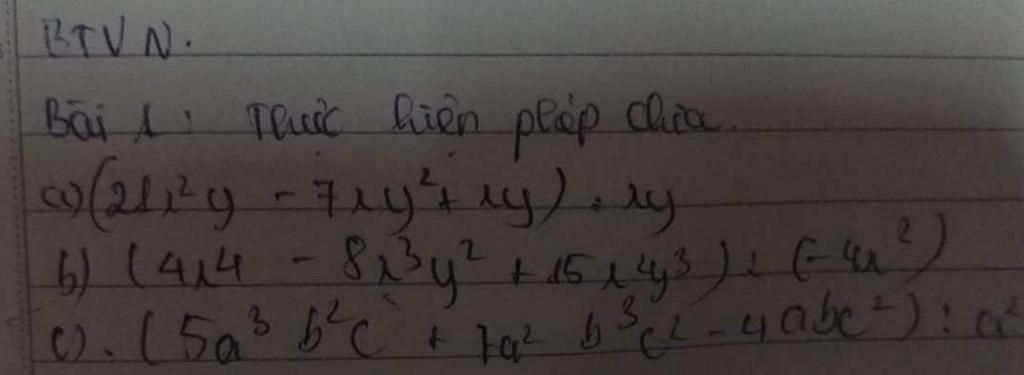 BTVN.
Bài 1: Thực hiện phép chia.
a) (21x²y - 7xy² + xy) : xy
b) (4x⁴ - 8x³y² + 15x²y³) : (-4x²)
c). (5a³ b²c + 7a² b³c² - 4abc²) : a²